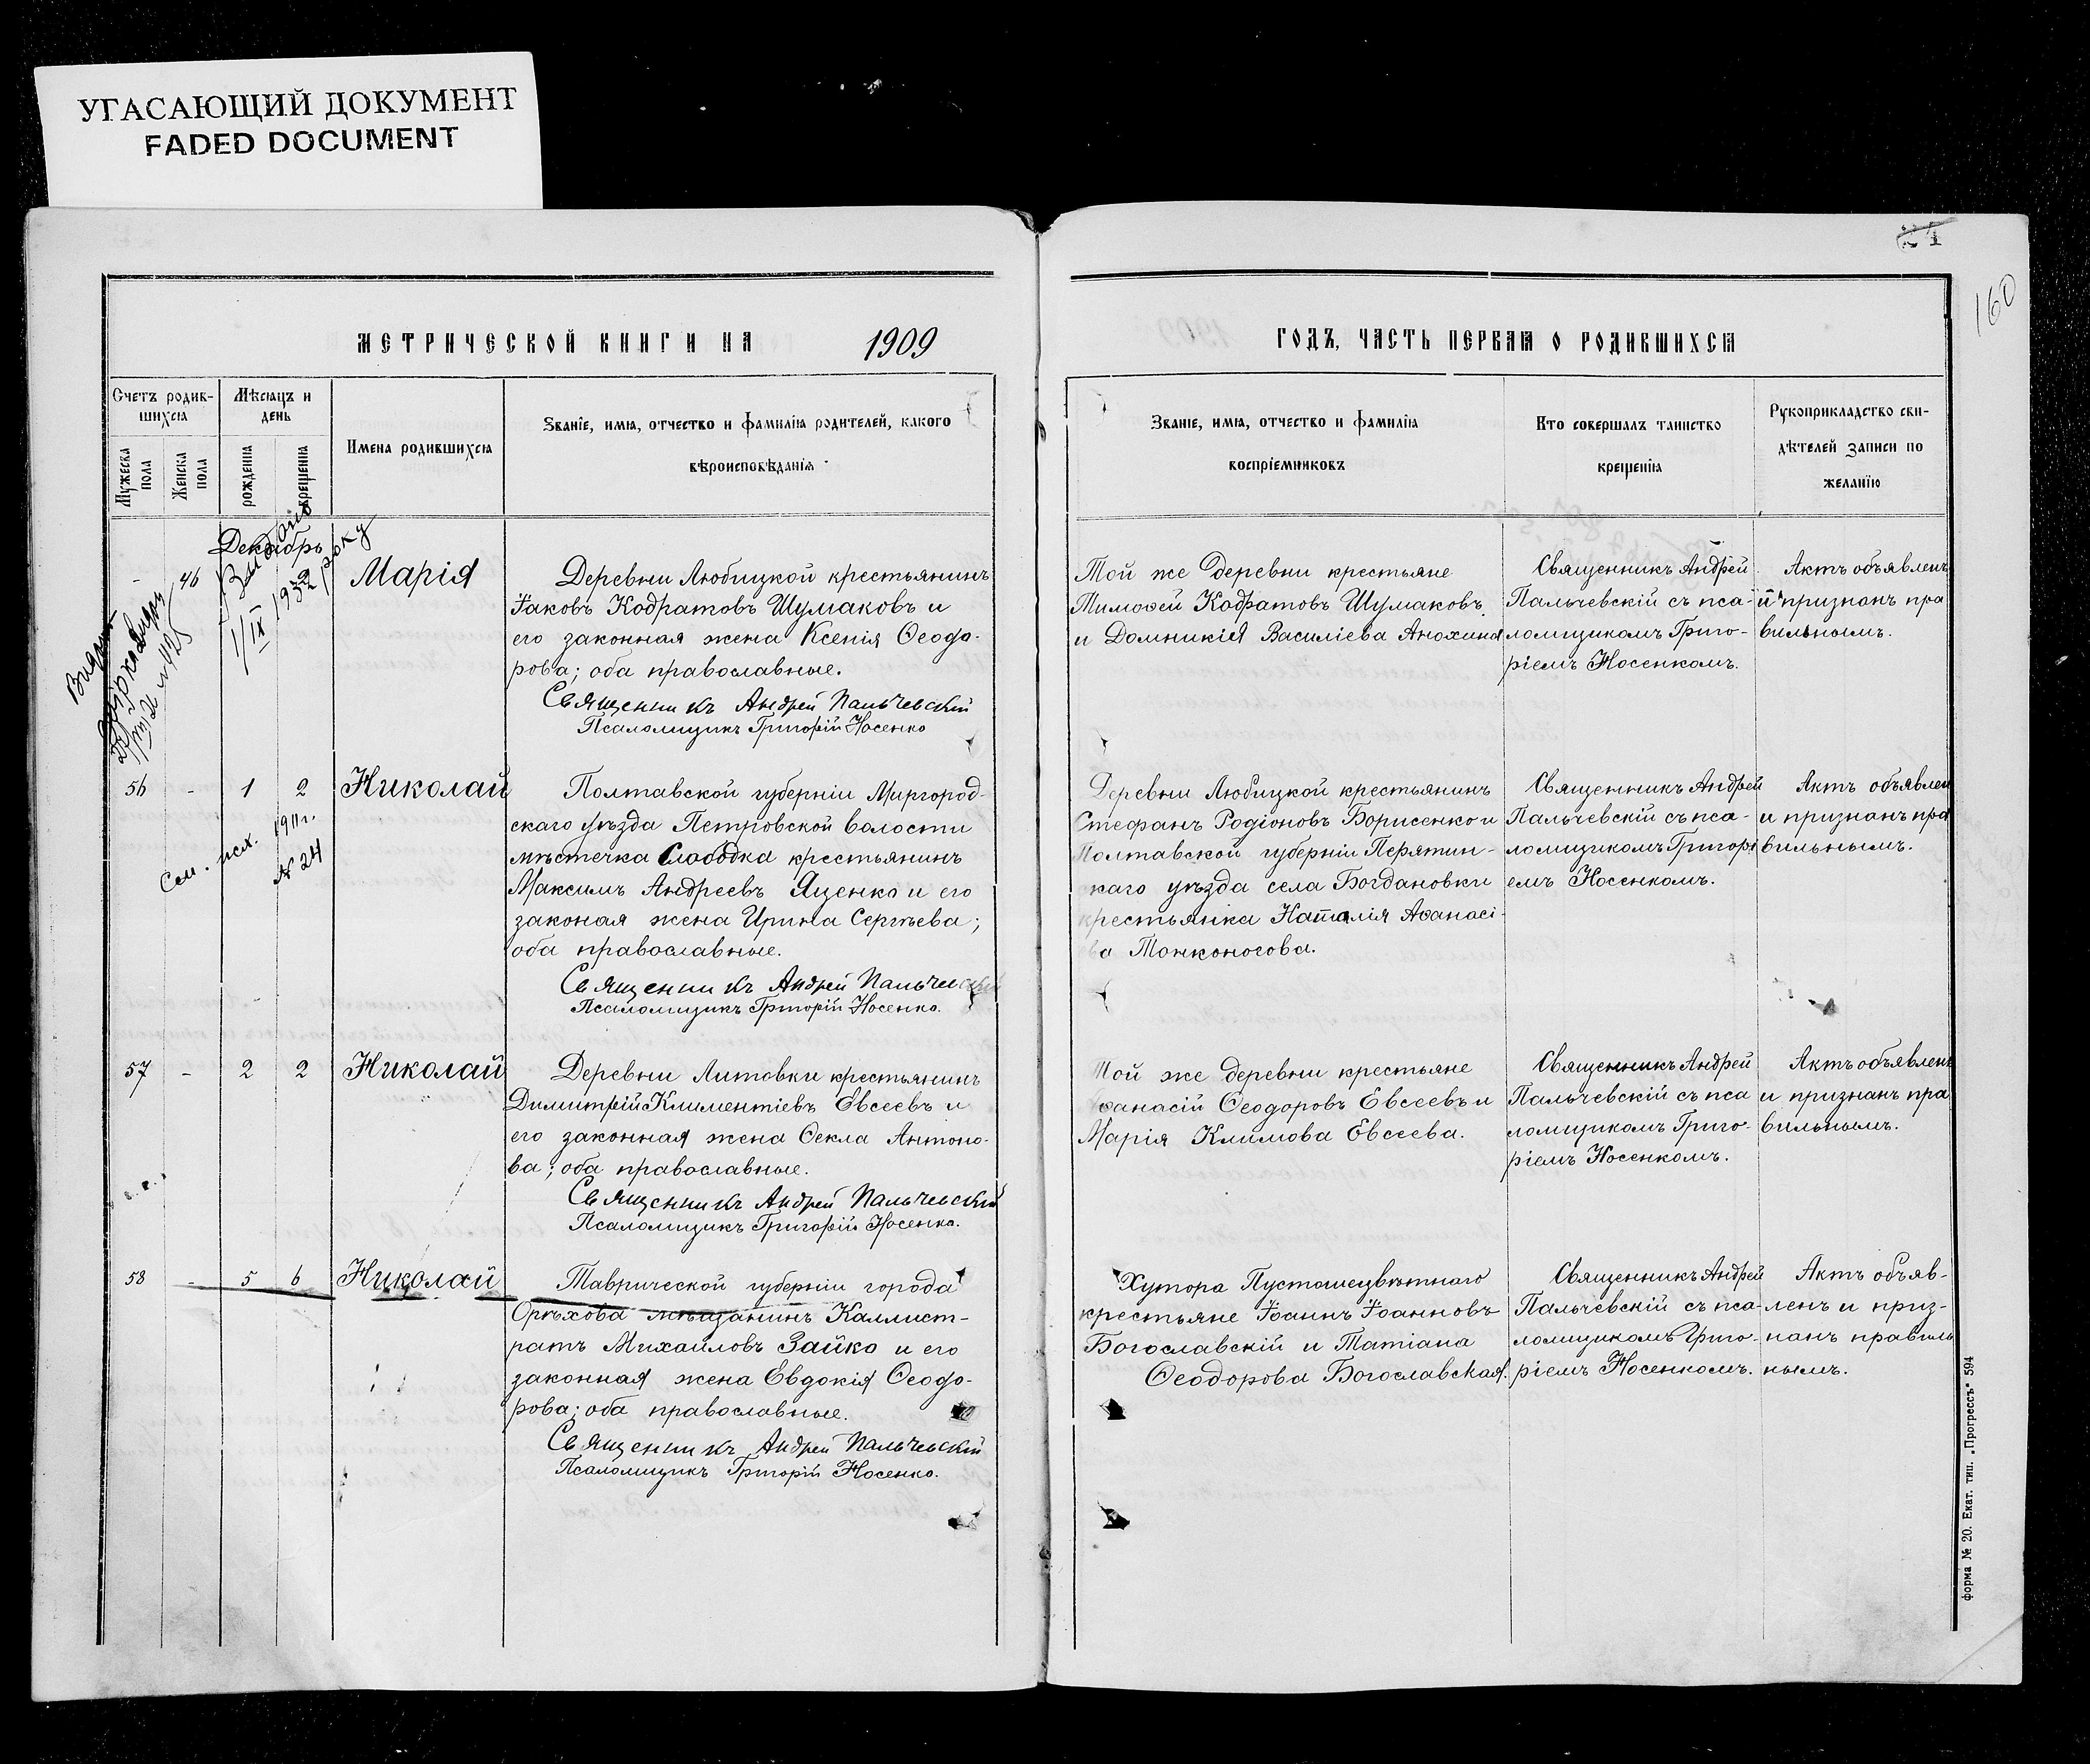 УГАСАЮЩИЙ ДОКУМЕНТ
FADED DOCUMENT
160
МЕТРИЧЕСКОЙ КНИГИ НА 1909
ГОДЪ, ЧАСТЬ ПЕРВАЯ О РОДИВШИХСЯ
Счетъ родив-
шихся
Мужеска пола
Женска пола
Мѣсяцъ и
день
рожденія
крещенія
Имена родившихся
Званіе, имя, отчество и фамилія родителей, какого
вѣроисповѣданія
Званіе, имя, отчество и фамилія
воспріемниковъ
Кто совершалъ таинство
крещенія
Рукоприкладство сви-
дѣтелей записи по
желанію
Декабрь
- 46
1/IX 1932 року
Марія
Деревни Любицкой крестьянинъ
Іаковъ Кодратовъ Шумаковъ и
его законная жена Ксенія Ѳеодо-
рова; оба православные.
Священникъ Андрей Пальчевскій
Псаломщикъ Григорій Носенко
Той же деревни крестьяне
Тимоѳей Кодратовъ Шумаковъ
и Домникія Василіева Анохина
Священникъ Андрей
Пальчевскій съ пса-
ломщикомъ Григо-
ріемъ Носенкомъ.
Актъ объявленъ
и признанъ пра
вильнымъ.
56 - 1 2
См. исх. 1911 г.
№ 24
Николай
Полтавской губерніи Миргород-
скаго уѣзда Петровской волости
мѣстечка Слободка крестьянинъ
Максимъ Андреевъ Яценко и его
законая жена Ирина Сергѣева;
оба православные.
Священникъ Андрей Пальчевскій
Псаломщикъ Григорій Носенко.
Деревни Любицкой крестьянинъ
Стефанъ Родіоновъ Борисенко и
Полтавской губерніи Перятин-
скаго уѣзда села Богдановки
крестьянка Наталія Аѳанасі-
ва Тонконогова.
Священникъ Андрей
Пальчевскій съ пса-
ломщикомъ Григорі
емъ Носенкомъ.
Актъ объявлен
и признанъ пра
вильнымъ.
57 - 2 2
Николай
Деревни Литовки крестьянинъ
Димитрій Климентіевъ Евсеевъ и
его законная жена Ѳекла Антоно-
ва; оба православные.
Священникъ Андрей Пальчевскій
Псаломщикъ Григорій Носенко.
Той же деревни крестьяне
Аѳанасій Ѳеодоровъ Евсеевъ и
Марія Климова Евсеева.
Священникъ Андрей
Пальчевскій съ пса
ломщикомъ Григо-
ріемъ Носенкомъ.
Актъ объявленъ
и признанъ пра
вильнымъ.
58 - 5 6
Николай
Таврической губерніи города
Орѣхова мѣщанинъ Каллист-
ратъ Михаиловъ Зайко и его
законная жена Евдокія Ѳеодо-
рова; оба православные.
Священникъ Андрей Пальчевскій
Псаломщикъ Григорій Носенко.
Хутора Пустошецвѣтнаго
крестьяне Іоаннъ Іоанновъ
Богославскій и Татіана
Ѳеодорова Богославская.
Священникъ Андрей
Пальчевскій съ пса-
ломщикомъ Григо-
ріемъ Носенкомъ.
Актъ объяв-
ленъ и приз-
нанъ правиль
нымъ.
форма № 20. Екат. тип. „Прогрессъ" 594